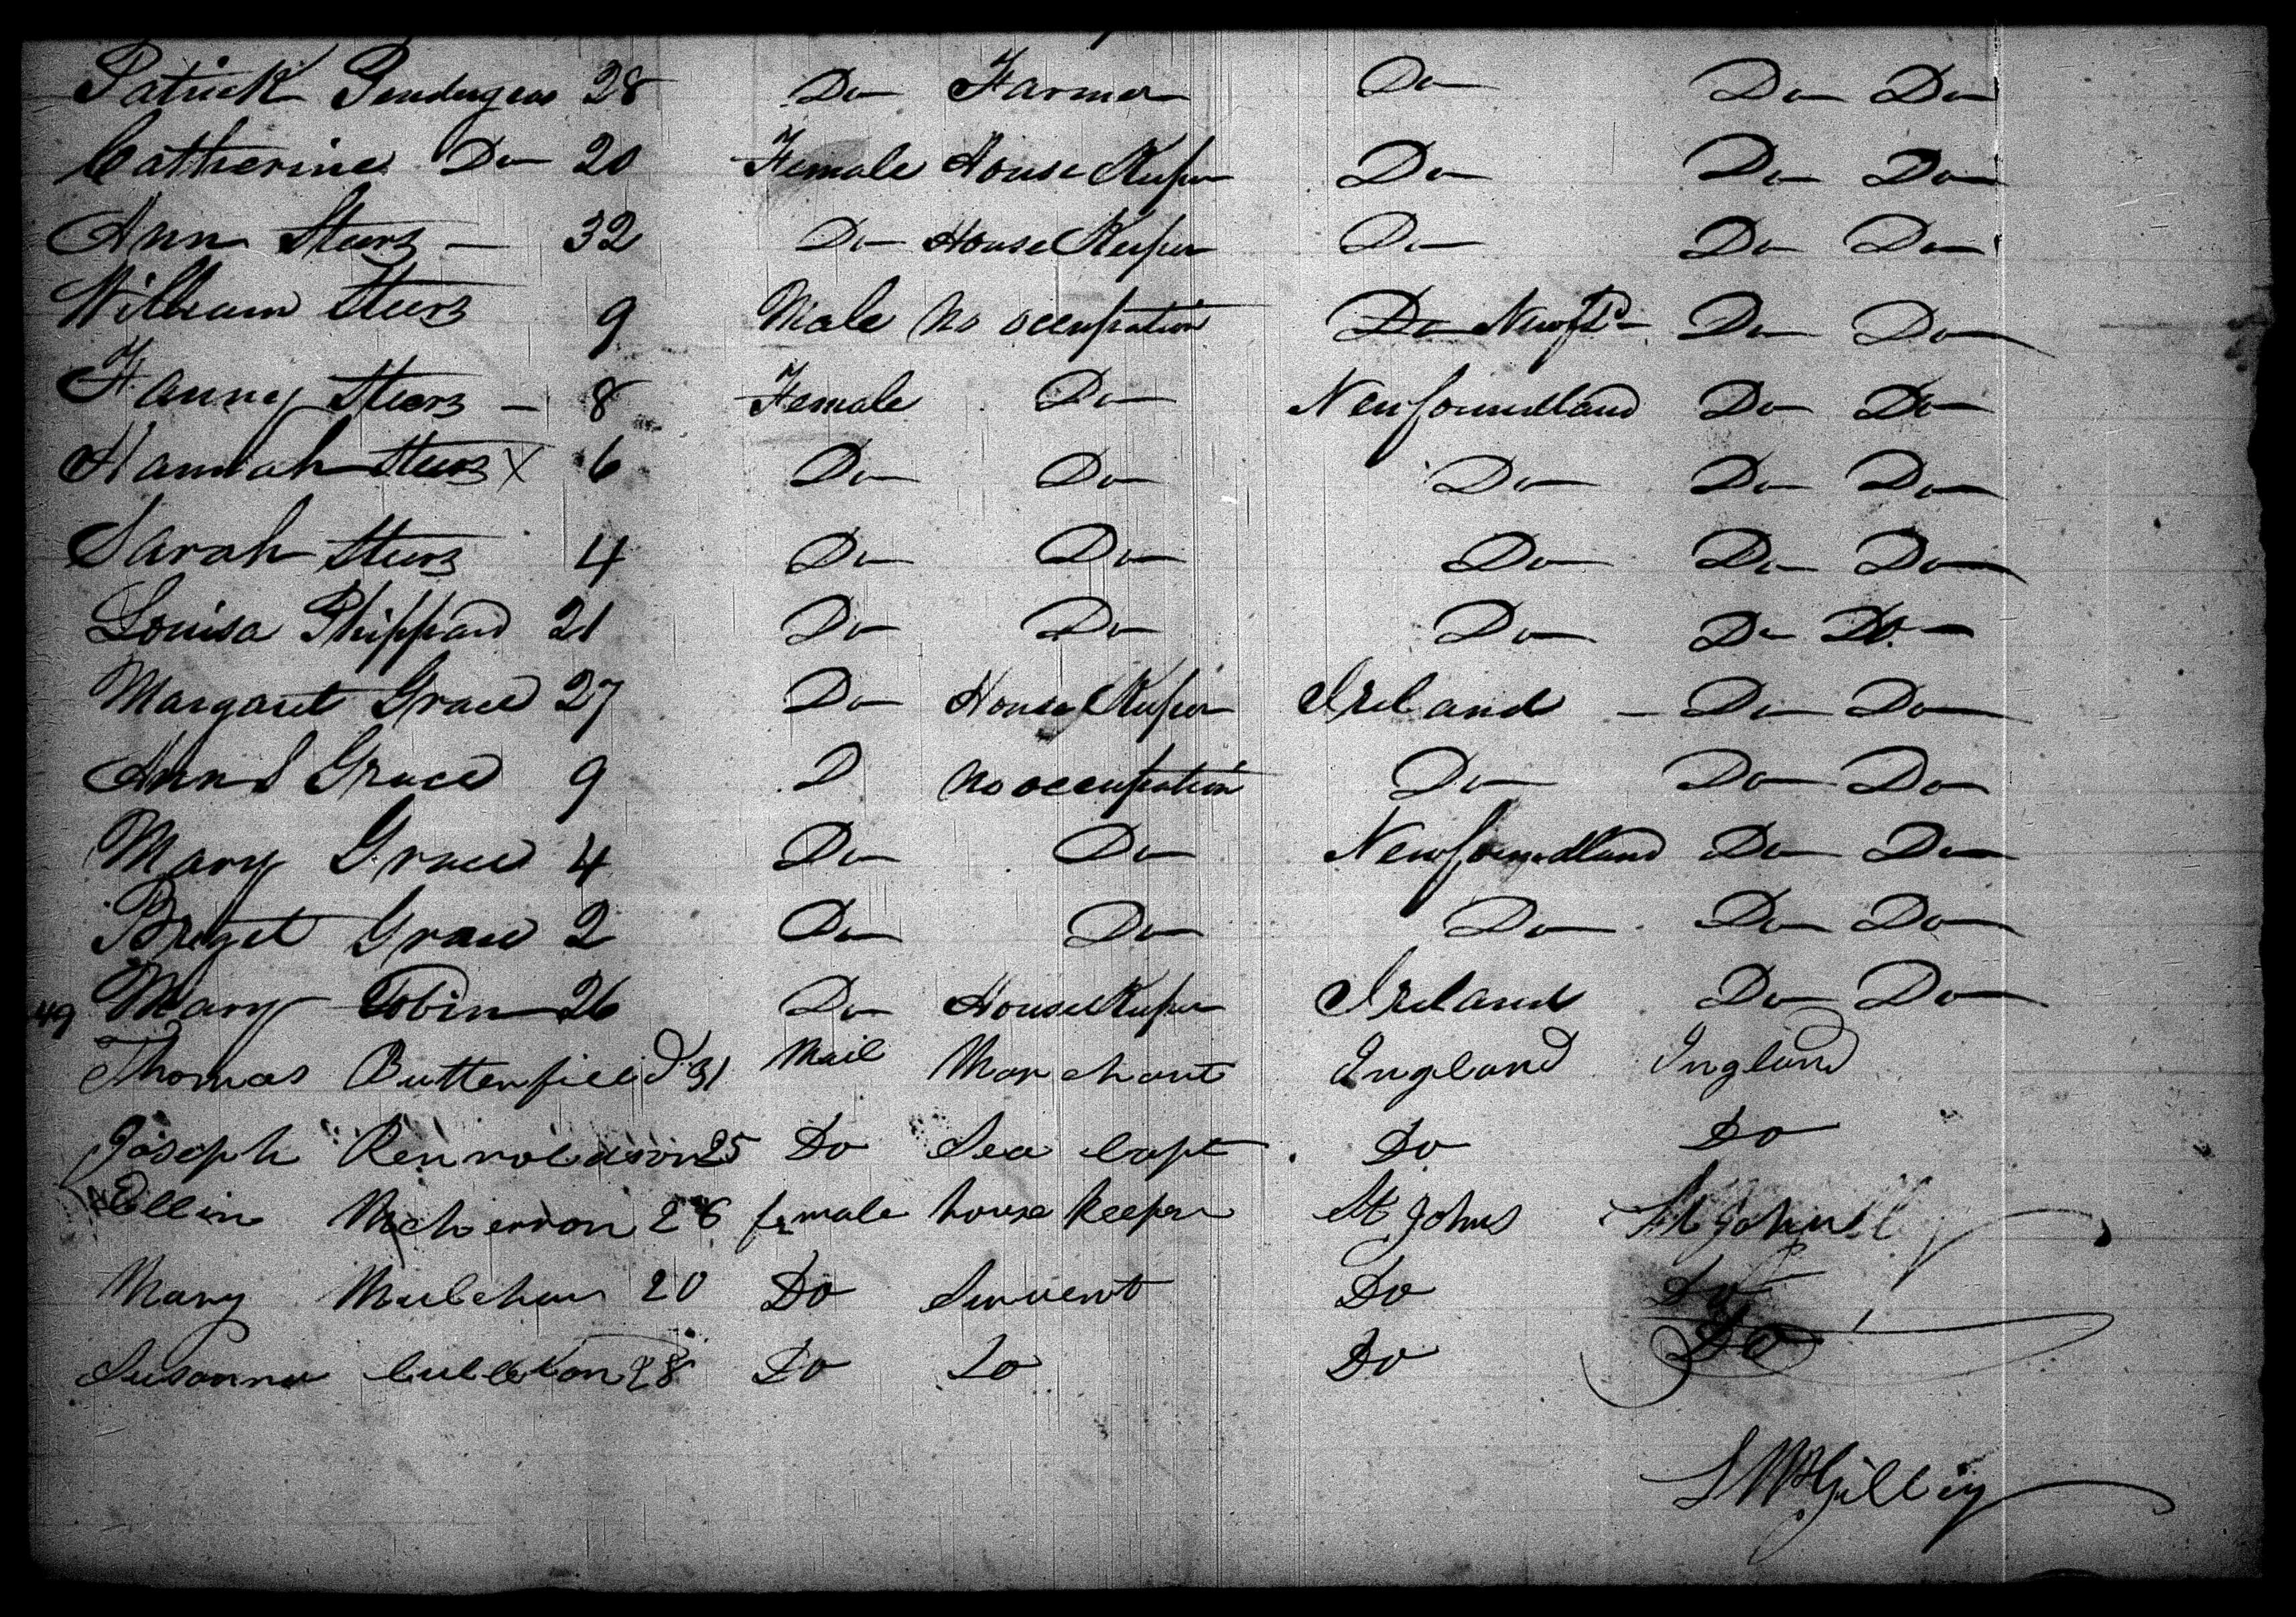 Patrick Pendergras 28 Do Farmer Do Do Do
Catherine Do 20 Female House Keeper Do Do Do
Ann Steers 32 Do House Keeper Do Do Do
William Steers 9 Male No occupation Do Newfd Do Do
Fanny Steers 8 Female Do Newfoundland Do Do
Hannah Steers X 6 Do Do Do Do Do
Sarah Steers 4 Do Do Do Do Do
Louisa Phippard 21 Do Do Do Do Do
Margaret Grace 27 Do House Keeper Ireland Do Do
Ann Grace 9 D No occupation Do Do Do
Mary Grace 4 Do Do Newfoundland Do Do
Briget Grace 2 Do Do Do Do Do
49 Mary Tobin 26 Do House Keeper Ireland Do Do
Thomas Butterfield 31 Mail Marchant Ingland Ingland
Joseph 25 Do Sea Capt Do Do
Ellin 26 female house keeper St Johns St Johns
Mary 20 Do Survent Do Do
Susanna Culleton 28 Do Do Do Do
Gilley